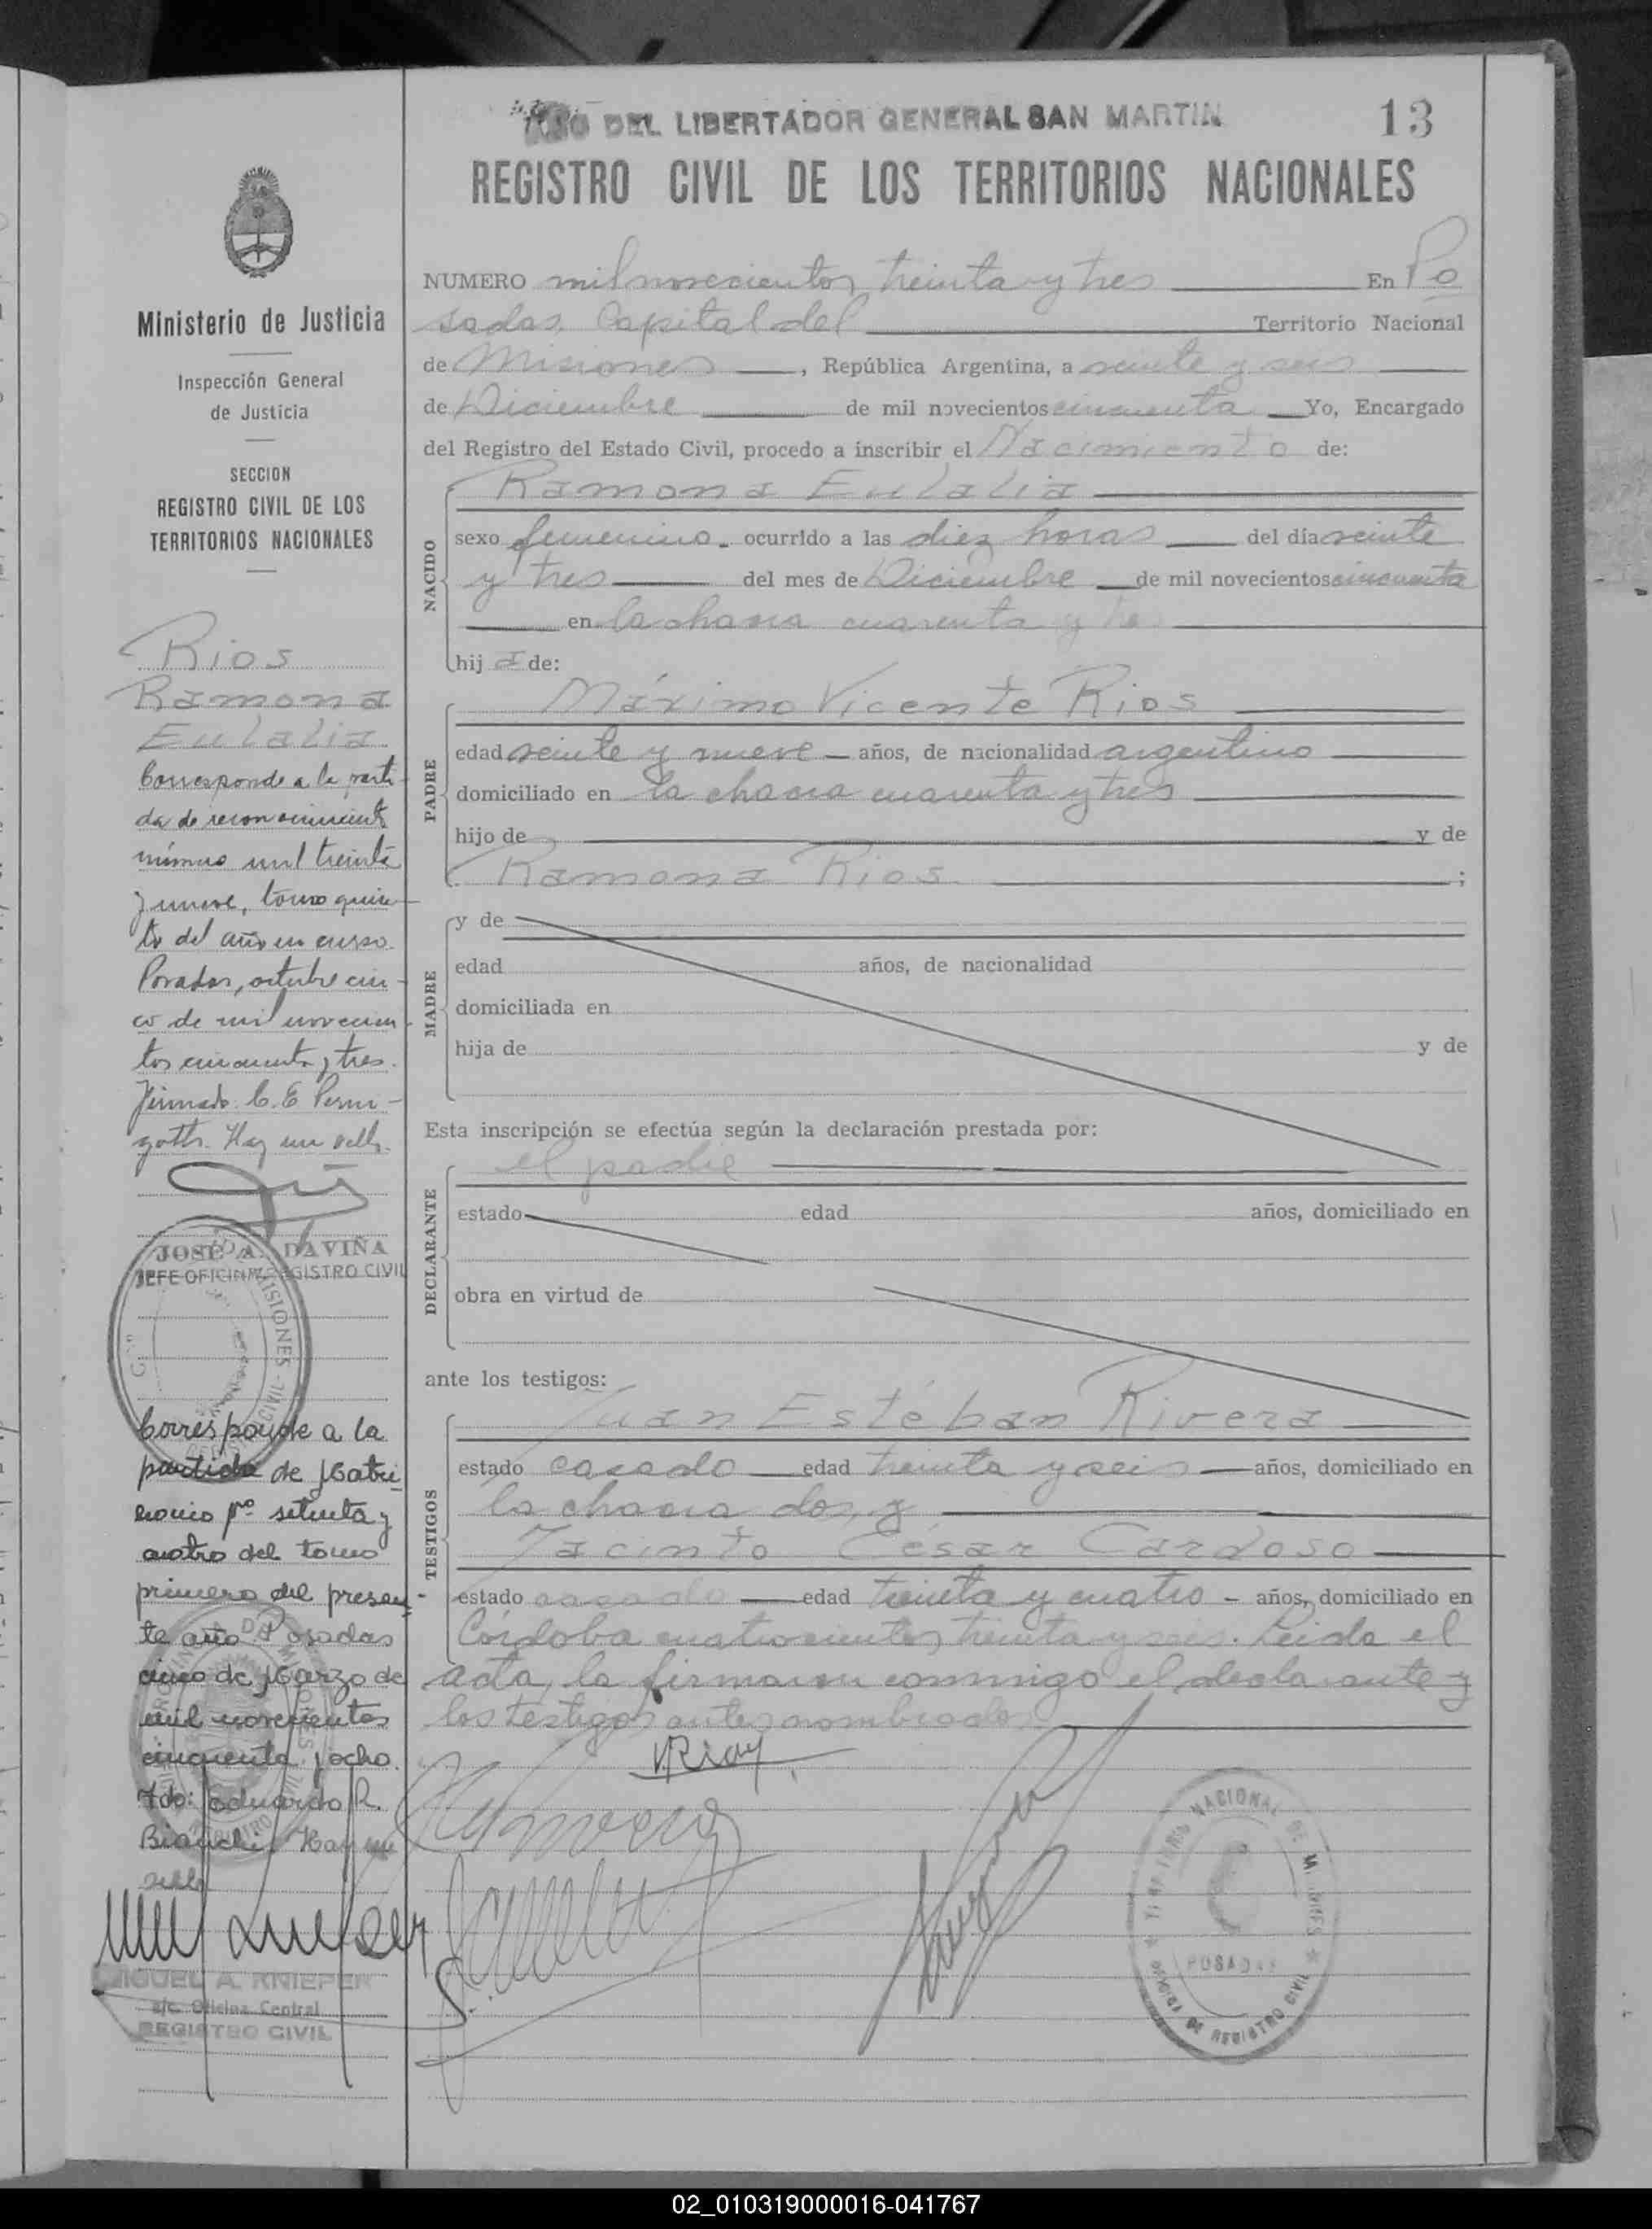 AÑO DEL LIBERTADOR GENERAL SAN MARTIN
13
REGISTRO CIVIL DE LOS TERRITORIOS NACIONALES
Ministerio de Justicia
Inspección General
de Justicia
SECCION
REGISTRO CIVIL DE LOS
TERRITORIOS NACIONALES
Rios
Ramona
Eulalia
Corresponde a la parti
da de reconocimiento
número mil treinta
y nueve, tomo quin
to del año en curso.
Posadas, octubre cin
co de mil novecien
tos cincuenta y tres.
Firmado. C. E.
Hay un sello.
JOSÉ A. DAVIÑA
JEFE OFICINA REGISTRO CIVIL
Corresponde a la
partida de Matri
monio Nº setenta y
cuatro del tomo
primero del presen
te año Posadas
cinco de Marzo de
mil novecientos
cincuenta y ocho.
Fdo: Eduardo R.
Bianchi. Hay un
sello
MIGUEL A. KNIEPER
a/c. Oficina Central
REGISTRO CIVIL
NUMERO mil novecientos treinta y tres En Po
sadas, Capital del Territorio Nacional
de Misiones, República Argentina, a veinte y seis
de Diciembre de mil novecientos cincuenta Yo, Encargado
del Registro del Estado Civil, procedo a inscribir el Nacimiento de:
NACIDO
Ramona Eulalia
sexo femenino. ocurrido a las diez horas del día veinte
y tres del mes de Diciembre de mil novecientos cincuenta
en la chacra cuarenta y tres
hij a de:
PADRE
Máximo Vicente Rios
edad veinte y nueve años, de nacionalidad argentino
domiciliado en la chacra cuarenta y tres
hijo de y de
Ramona Rios ;
MADRE
y de
edad años, de nacionalidad
domiciliada en
hija de y de
Esta inscripción se efectúa según la declaración prestada por:
DECLARANTE
el padre
estado edad años, domiciliado en
obra en virtud de
ante los testigos:
TESTIGOS
Juan Estéban Rivera
estado casado edad treinta y seis años, domiciliado en
la chacra dos, y
Jacinto César Cardoso
estado casado edad treinta y cuatro - años, domiciliado en
Córdoba cuatrocientos treinta y seis. Leida el
acta, la firmaron conmigo el declarante y
los testigos antes nombrados.
VRios
TERRITORIO NACIONAL DE MISIONES
POSADAS
OFICINA DE REGISTRO CIVIL
02_010319000016-041767